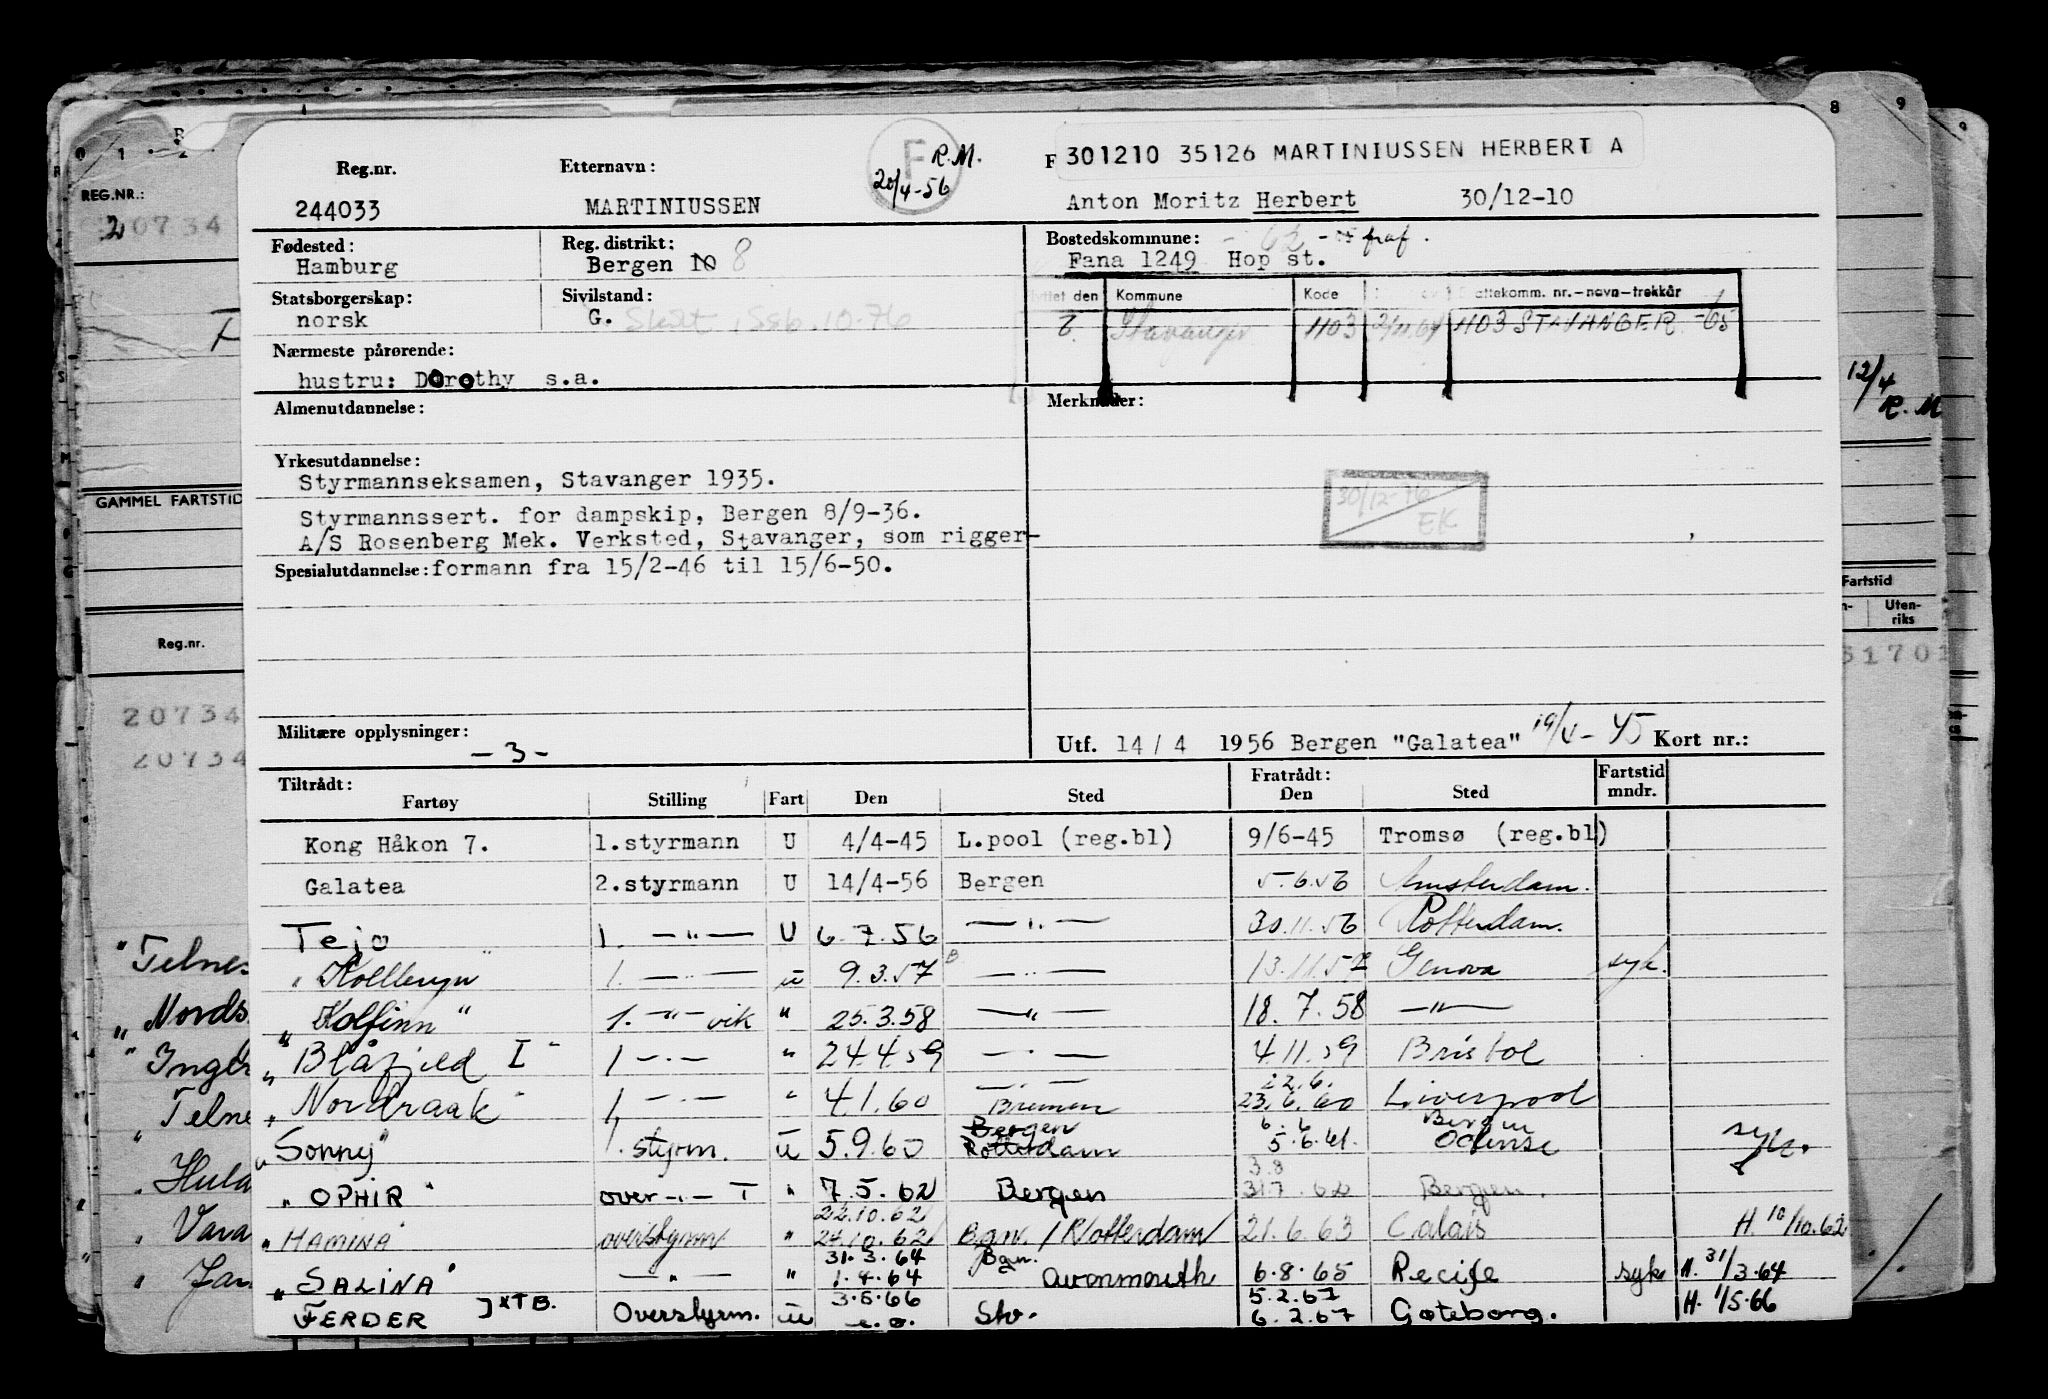 8 9
0 1 2
REG.NR.:
20734
GAMMEL FARTSTID
Reg.nr.
20734
20734
"Telnes
"Nords
"Inger
"Telne
"Hula
"Vara
"Jan
12/4
R. M
Fartstid
Uten-
riks
51701
Reg.nr. Etternavn: R.M. F 301210 35126 MARTINIUSSEN HERBERT A
244033 MARTINIUSSEN 20/4-56 Anton Moritz Herbert 30/12-10
Fødested: Reg. distrikt: Bostedskommune: - 62 - fraf.
Hamburg Bergen 10 8 Fana 1249 Hop st.
Statsborgerskap: Sivilstand: Flyttet den Kommune Kode Skattekomm. nr.-navn-trekkår
norsk G. Stavanger 1103 1103 STAVANGER -65
Nærmeste pårørende:
hustru: Dorothy s.a.
Almenutdannelse: Merknader:
Yrkesutdannelse:
Styrmannseksamen, Stavanger 1935.
30/12-76
EK
Styrmannssert. for dampskip, Bergen 8/9-36.
A/S Rosenberg Mek. Verksted, Stavanger, som rigger-
Spesialutdannelse: formann fra 15/2-46 til 15/6-50.
Militære opplysninger: -3- Utf. 14/4 1956 Bergen "Galatea" 19/V-45 Kort nr.:
Tiltrådt: Fratrådt: Fartstid
Fartøy Stilling Fart Den Sted Den Sted mndr.
Kong Håkon 7. 1.styrmann U 4/4-45 L.pool (reg.bl) 9/6-45 Tromsø (reg.bl)
Galatea 2.styrmann U 14/4-56 Bergen 5.6.56 Amsterdam.
Tejo 1. —"— U 6.7.56 —"— 30.11.56 Rotterdam.
"Kollbryn" 1. —"— u 9.3.57 —"— 13.11.57 Genova syk.
"Kolfinn" 1. —"— vik " 25.3.58 —"— 18.7.58 —"—
"Blåfjeld I" 1 —"— " 24.4.59 —"— 4.11.59 Bristol
—"— 22.6.
"Nordraak" 1, —"— " 4.1.60 Bremen 23.6.60 Liverpool
Bergen 6.6 Bergen
"Sonny" 1. styrm. u 5.9.60 Rotterdam 5.6.61. Odense syk.
3.8
"OPHIR" over —"— T " 7.5.62 Bergen 31.7.62 Bergen.
22.10.62
"HAMINA" overstyrm " 24.10.62 Bgn. / Rotterdam 21.6.63 Calais H. 10/10.62
31.3.64 Bgn.
"SALINA" —"— " 1.4.64 Avonmouth 6.8.65 Recife syk H. 31/3.64
3.5.66 5.2.67
FERDER ] xTB. Overstyrm. u e.o. Stv. 6.2.67 Gøteborg. H. 1/5.66